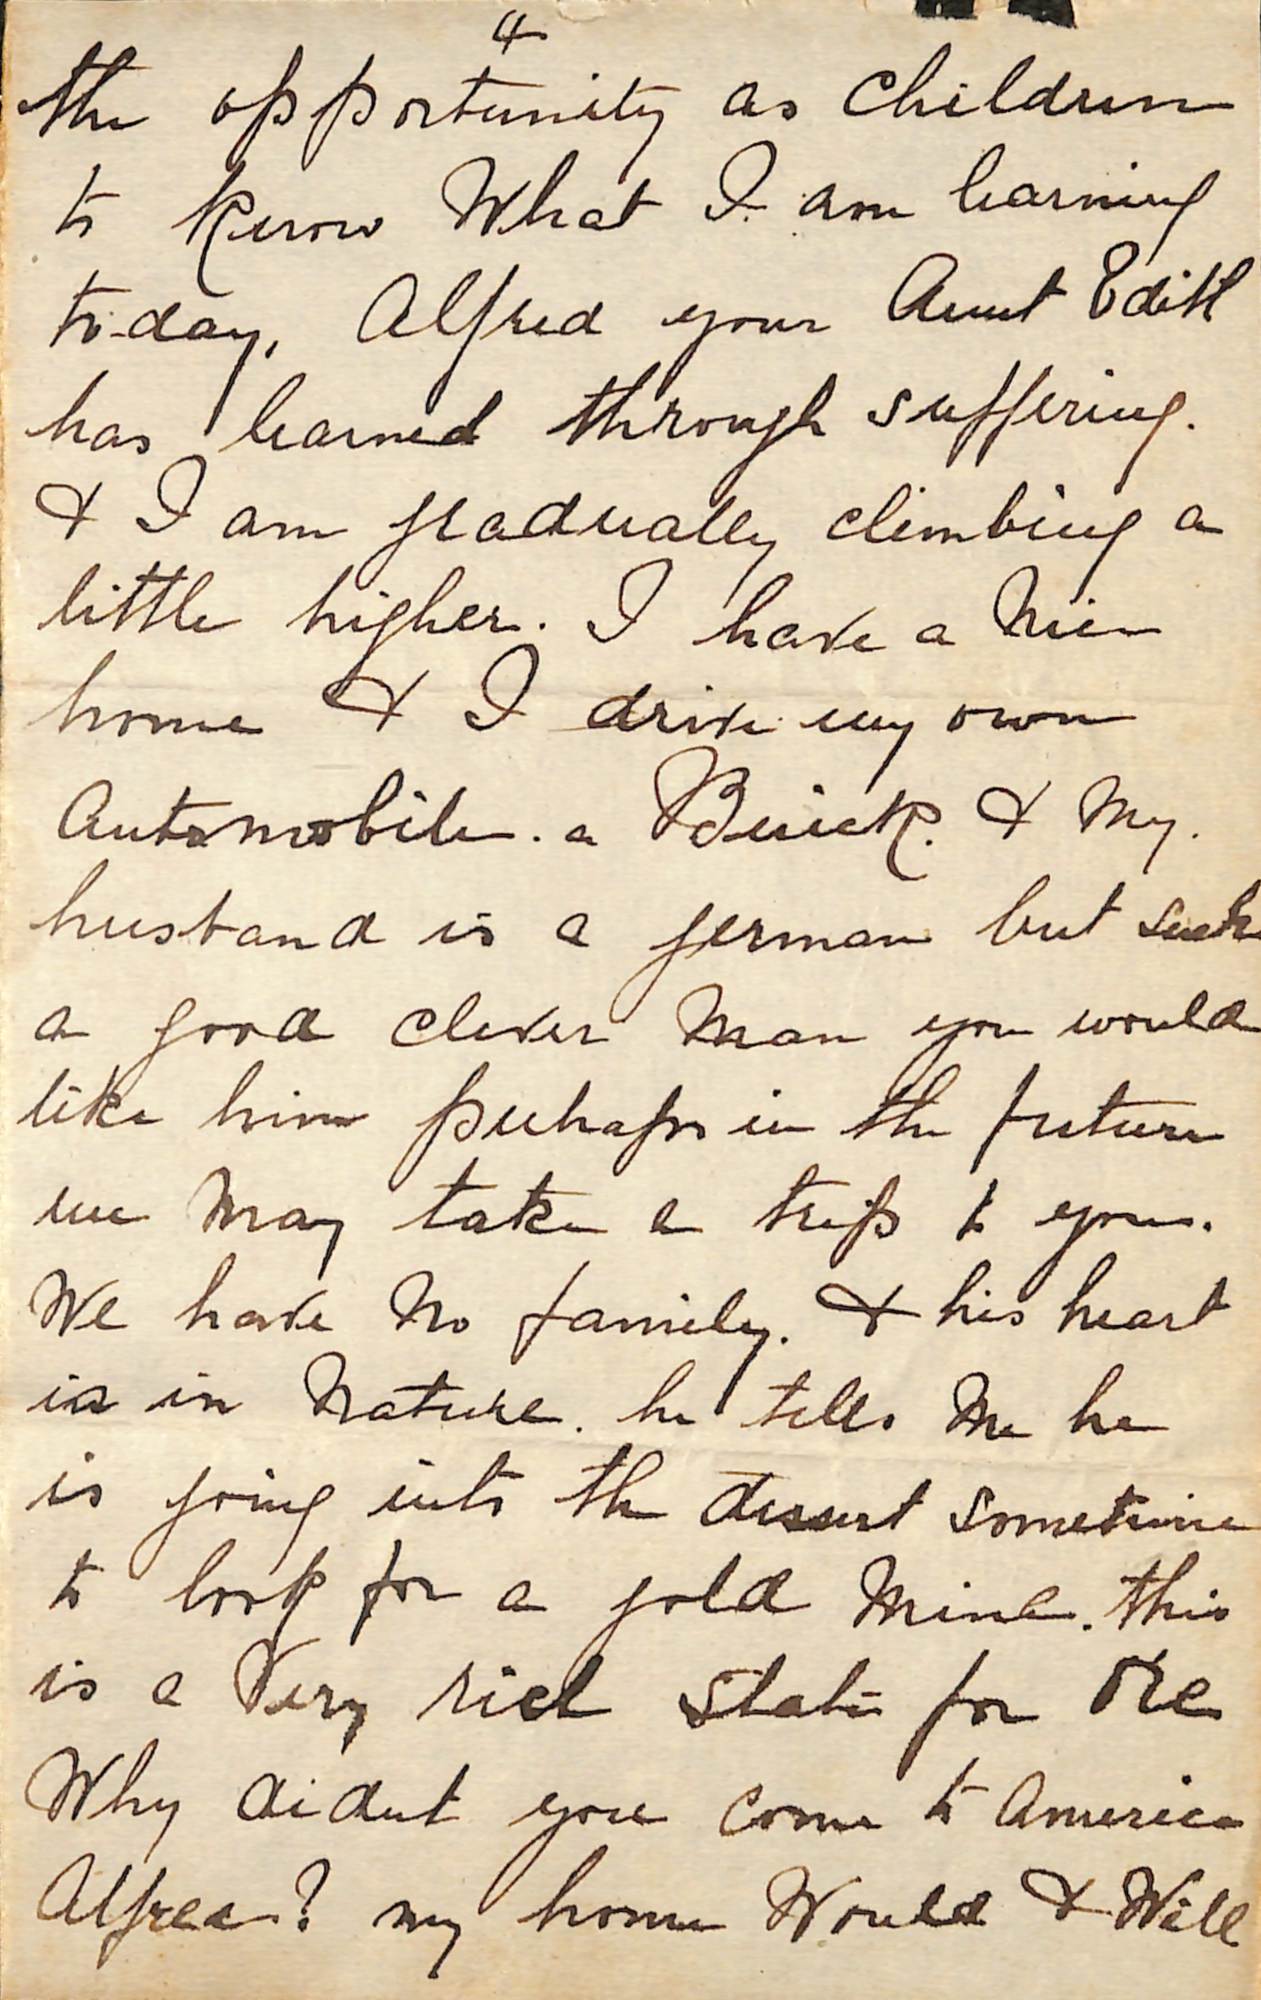 4
the opportunity as children
to know What I am learning
to-day, Alfred your Aunt Edith
has learned through suffering.
& I am gradually climbing a
little higher. I have a Nice
home & I drive my own
Automobile. a Buick. & My.
husband is a german but such
a good clever Man you would
like him perhaps in the future
we May take a trip to you.
We have No family. & his heart
is in Nature. he tells Me he
is going into the desert sometime
to look for a gold Mine. this
is a Very rich state for Ore
Why didnt you come to America
Alfred? my home Would & Will